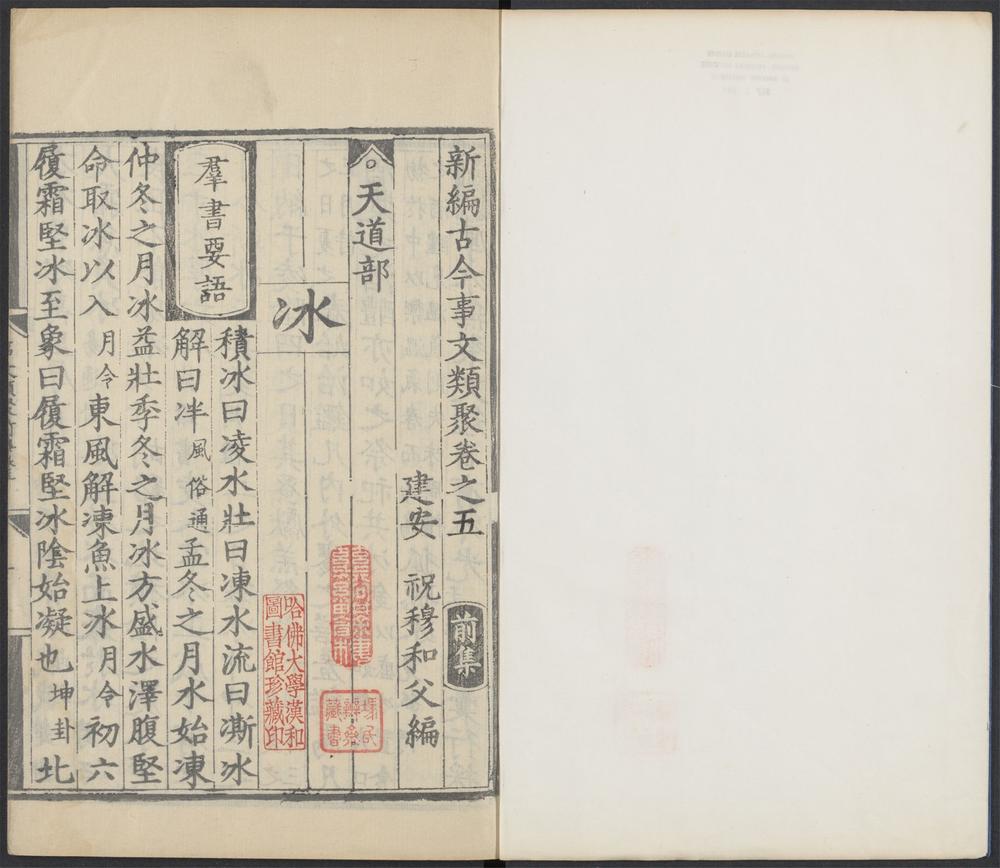 新編古今事文類聚卷之五 前集
建安 祝穆和父編
○天道部
冰
羣書要語
積冰曰凌水壯曰凍水流曰澌冰
解曰泮風俗通孟冬之月水始凍
仲冬之月冰益壯季冬之月冰方盛水澤腹堅
命取冰以入月令東風解凍魚上冰月令初六
履霜堅冰至象曰履霜堅冰陰始凝也坤卦北
哈佛大學漢和
圖書館珍藏印